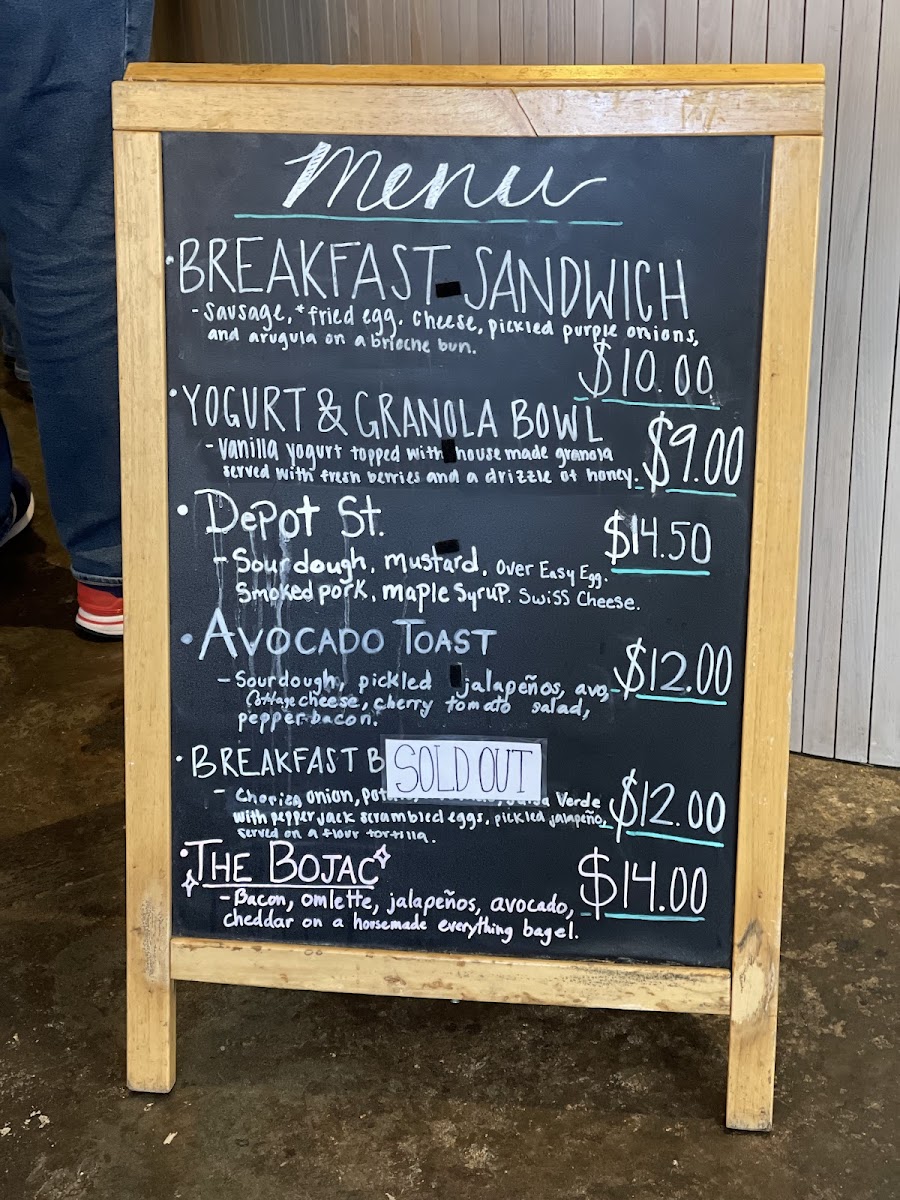 Menu
• BREAKFAST SANDWICH
- Sausage, *fried egg, cheese, pickled purple onions,
and arugula on a brioche bun.
$10.00
• YOGURT & GRANOLA BOWL
- Vanilla yogurt topped with house made granola
served with fresh berries and a drizzle of honey.
$9.00
• Depot St.
$14.50
- Sourdough, mustard, over Easy Egg.
Smoked pork, maple syrup. Swiss Cheese.
• AVOCADO TOAST
$12.00
- Sourdough, pickled jalapeños, avo,
Cottage cheese, cherry tomato salad,
pepper bacon.
• BREAKFAST B
SOLD OUT
- Chorizo, onion, Verde
with pepper jack scrambled eggs, pickled jalapeño,
served on a flour tortilla.
$12.00
• THE BOJAC
$14.00
- Bacon, omlette, jalapeños, avocado,
cheddar on a horsemade everything bagel.